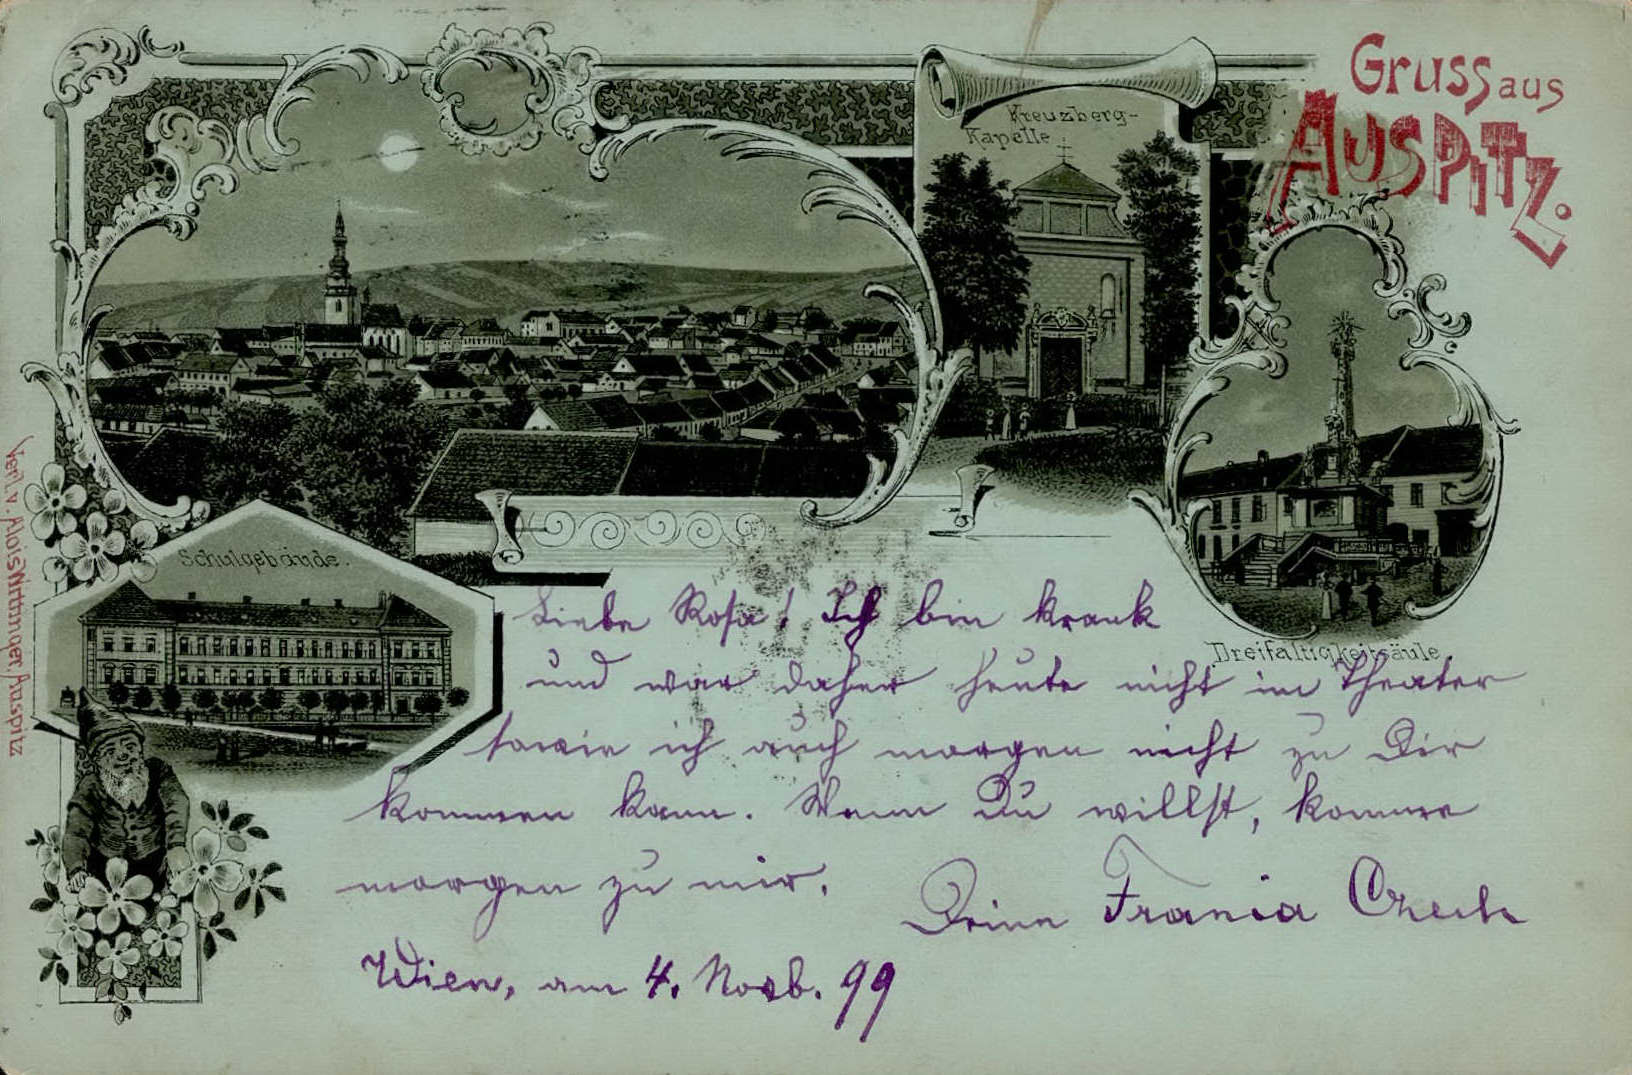 Gruss aus
AUSPITZ.
Kreuzberg-
Kapelle.
Schulgebäude.
Dreifaltigkeitssäule.
Verl. v. Alois Wittmayer, Auspitz
Liebe Rosa! Ich bin krank
und war daher heute nicht im Theater
sowie ich auch morgen nicht zu Dir
kommen kann. Wenn Du willst, komme
morgen zu mir.
Deine Frania
Wien, am 4. Novb. 99